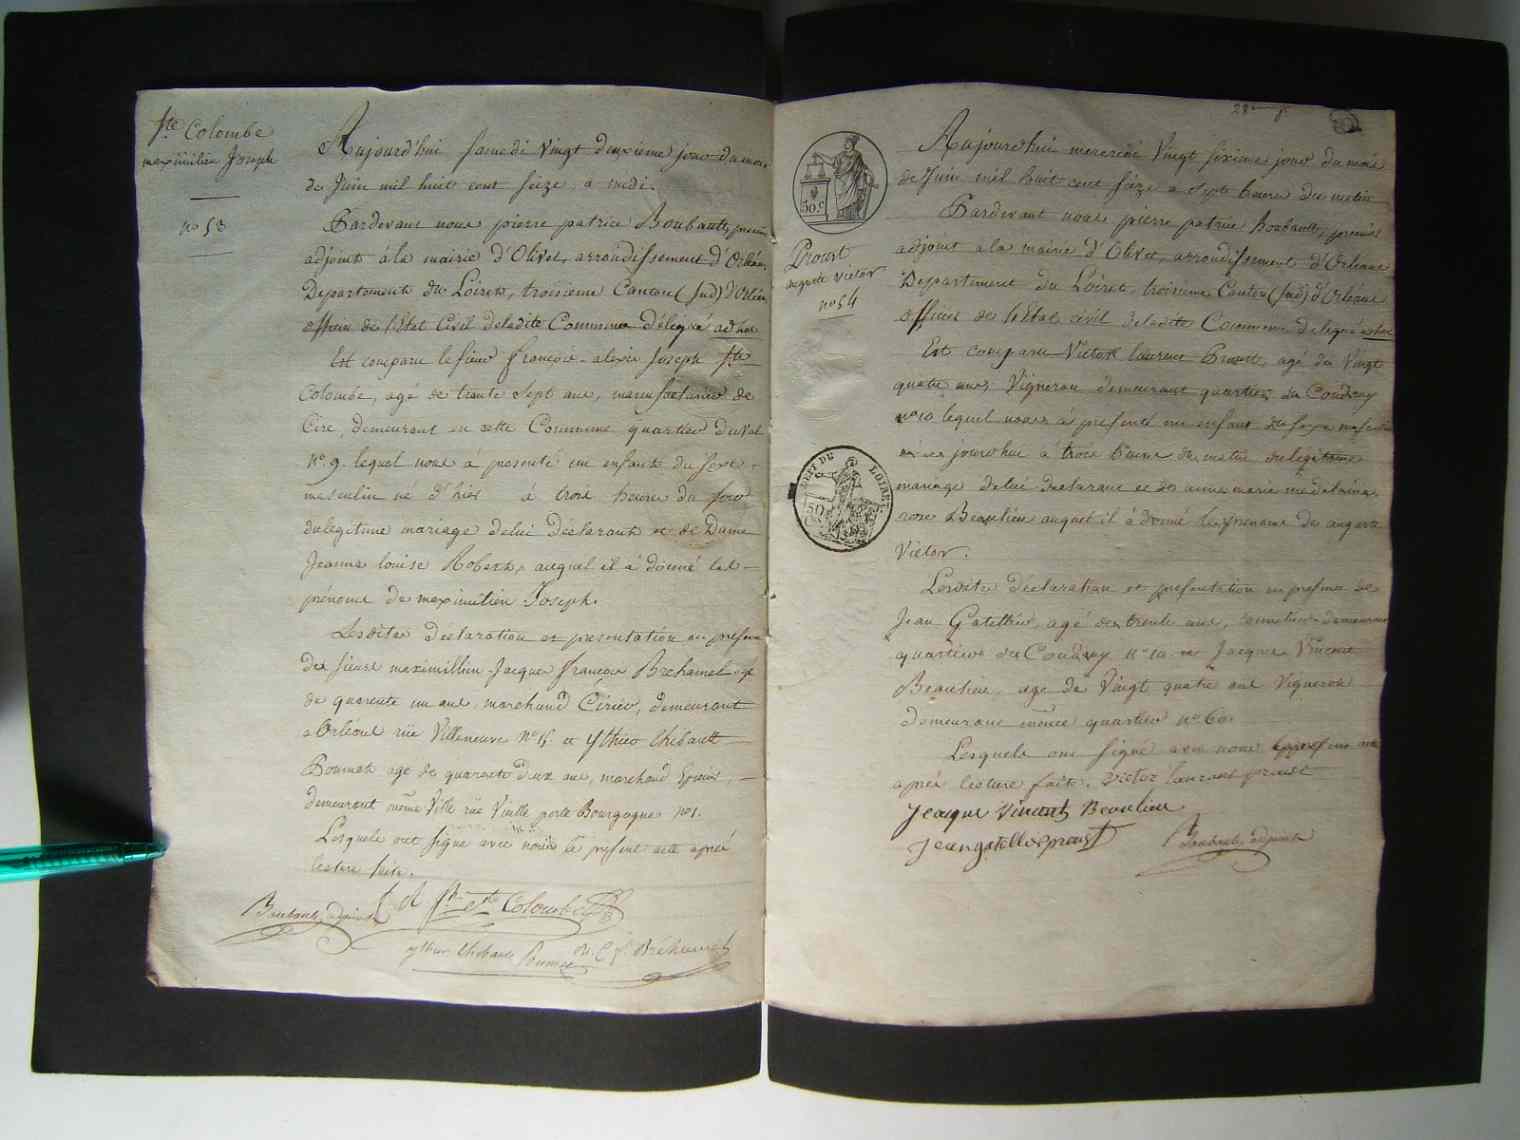 Ste Colombe
maximilien Joseph
n° 53
Aujourd'hui samedi vingt deuxieme jour du mois
de Juin mil huit cent seize, à midi.
Pardevant nous pierre patrice Boubault, premier
adjoint à la mairie d'Olivet, arrondissement d'Orléans
Departement du Loiret, troisieme Canton (sud) d'Orléans
officier de l'Etat Civil deladite Commune délégué ad hoc
Est comparu le sieur françois alexis Joseph Ste
Colombe, agé de trente sept ans, manufacturier de
Cire, demeurant en cette Commune quartier du val
N° 9. lequel nous à presenté un enfant du sexe
masculin né d'hier à trois heures du soir
du legitime mariage de lui Déclarant et de Dame
Jeanne louise Robert, auquel il à donné les
prénoms de maximilien Joseph.
Lesdites déclaration et presentation en presence
des sieurs maximillien Jacques françois Brehamel agé
de quarente un ans, marchand Cirier, demeurant
a Orléans rüe Villeneuve N° et Ythier thibault
Boumat agé de quarente deux ans, marchand Epicier,
demeurant même Ville rüe Vieille porte Bourgogne n° 1.
Lesquels ont signé avec nous le présent acte après
lecture faite.
Boubault, adjoint Ste Colombe
ythier thibault Brehamel
28
Proust
auguste Victor
n° 54
50 c
LOIRET
Aujourd'hui mercredi vingt sixieme jour du mois
de Juin mil huit cent seize a sept heure du matin
Pardevant nous pierre patrice Boubault, premier
adjoint à la mairie d'Olivet, arrondissement d'Orléans
Departement du Loiret, troisieme Canton (sud) d'Orléans
officier de l'Etat civil deladite Commune delegué ad hoc
Est comparu Victor laurent Proust, agé de Vingt
quatre ans, Vigneron demeurant quartier du Coudray
n° 10 lequel nous à presenté un enfant du sexe masculin
né ce jourdhui à trois heure du matin du legitime
mariage de lui declarant et de anne marie medelaine
rose Beaulieu auquel il à donné les prenoms de auguste
Victor.
Lesdites déclaration et presentation en presence de
Jean Gatellier, agé de trente ans, demeurant
quartier du Coudray n° 10 et Jacque Vincent
Beaulieu, agé de Vingt quatre ans Vigneron
demeurant même quartier n° 60.
Lesquels ont signé avec nous le present acte
après lecture faite. victor laurent proust
Jacque Vincent Beaulieu
Jean gatellier proust Boubault, adjoint